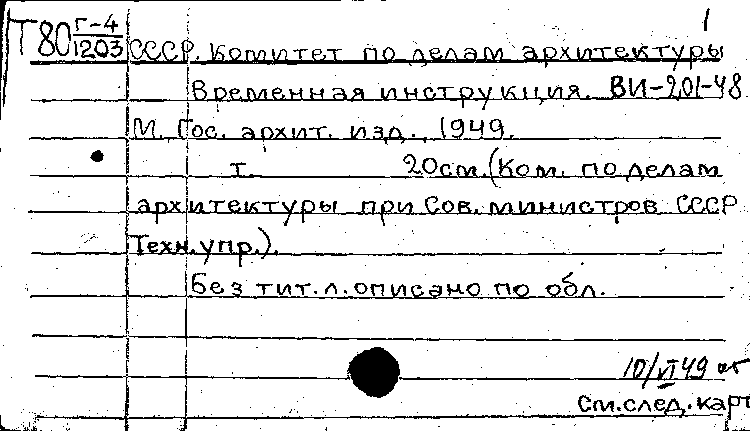 1
Т80 Г-4/1203 СССР. Комитет по делам архитектуры
Временная инструкция. ВИ-201-48
М. Гос. архит. изд., 1949.
т. 20см. (Ком. по делам
архитектуры при Сов. министров СССР
Техн. упр.).
Без тит. л. описано по обл.
10/VI 49
См. след. карт